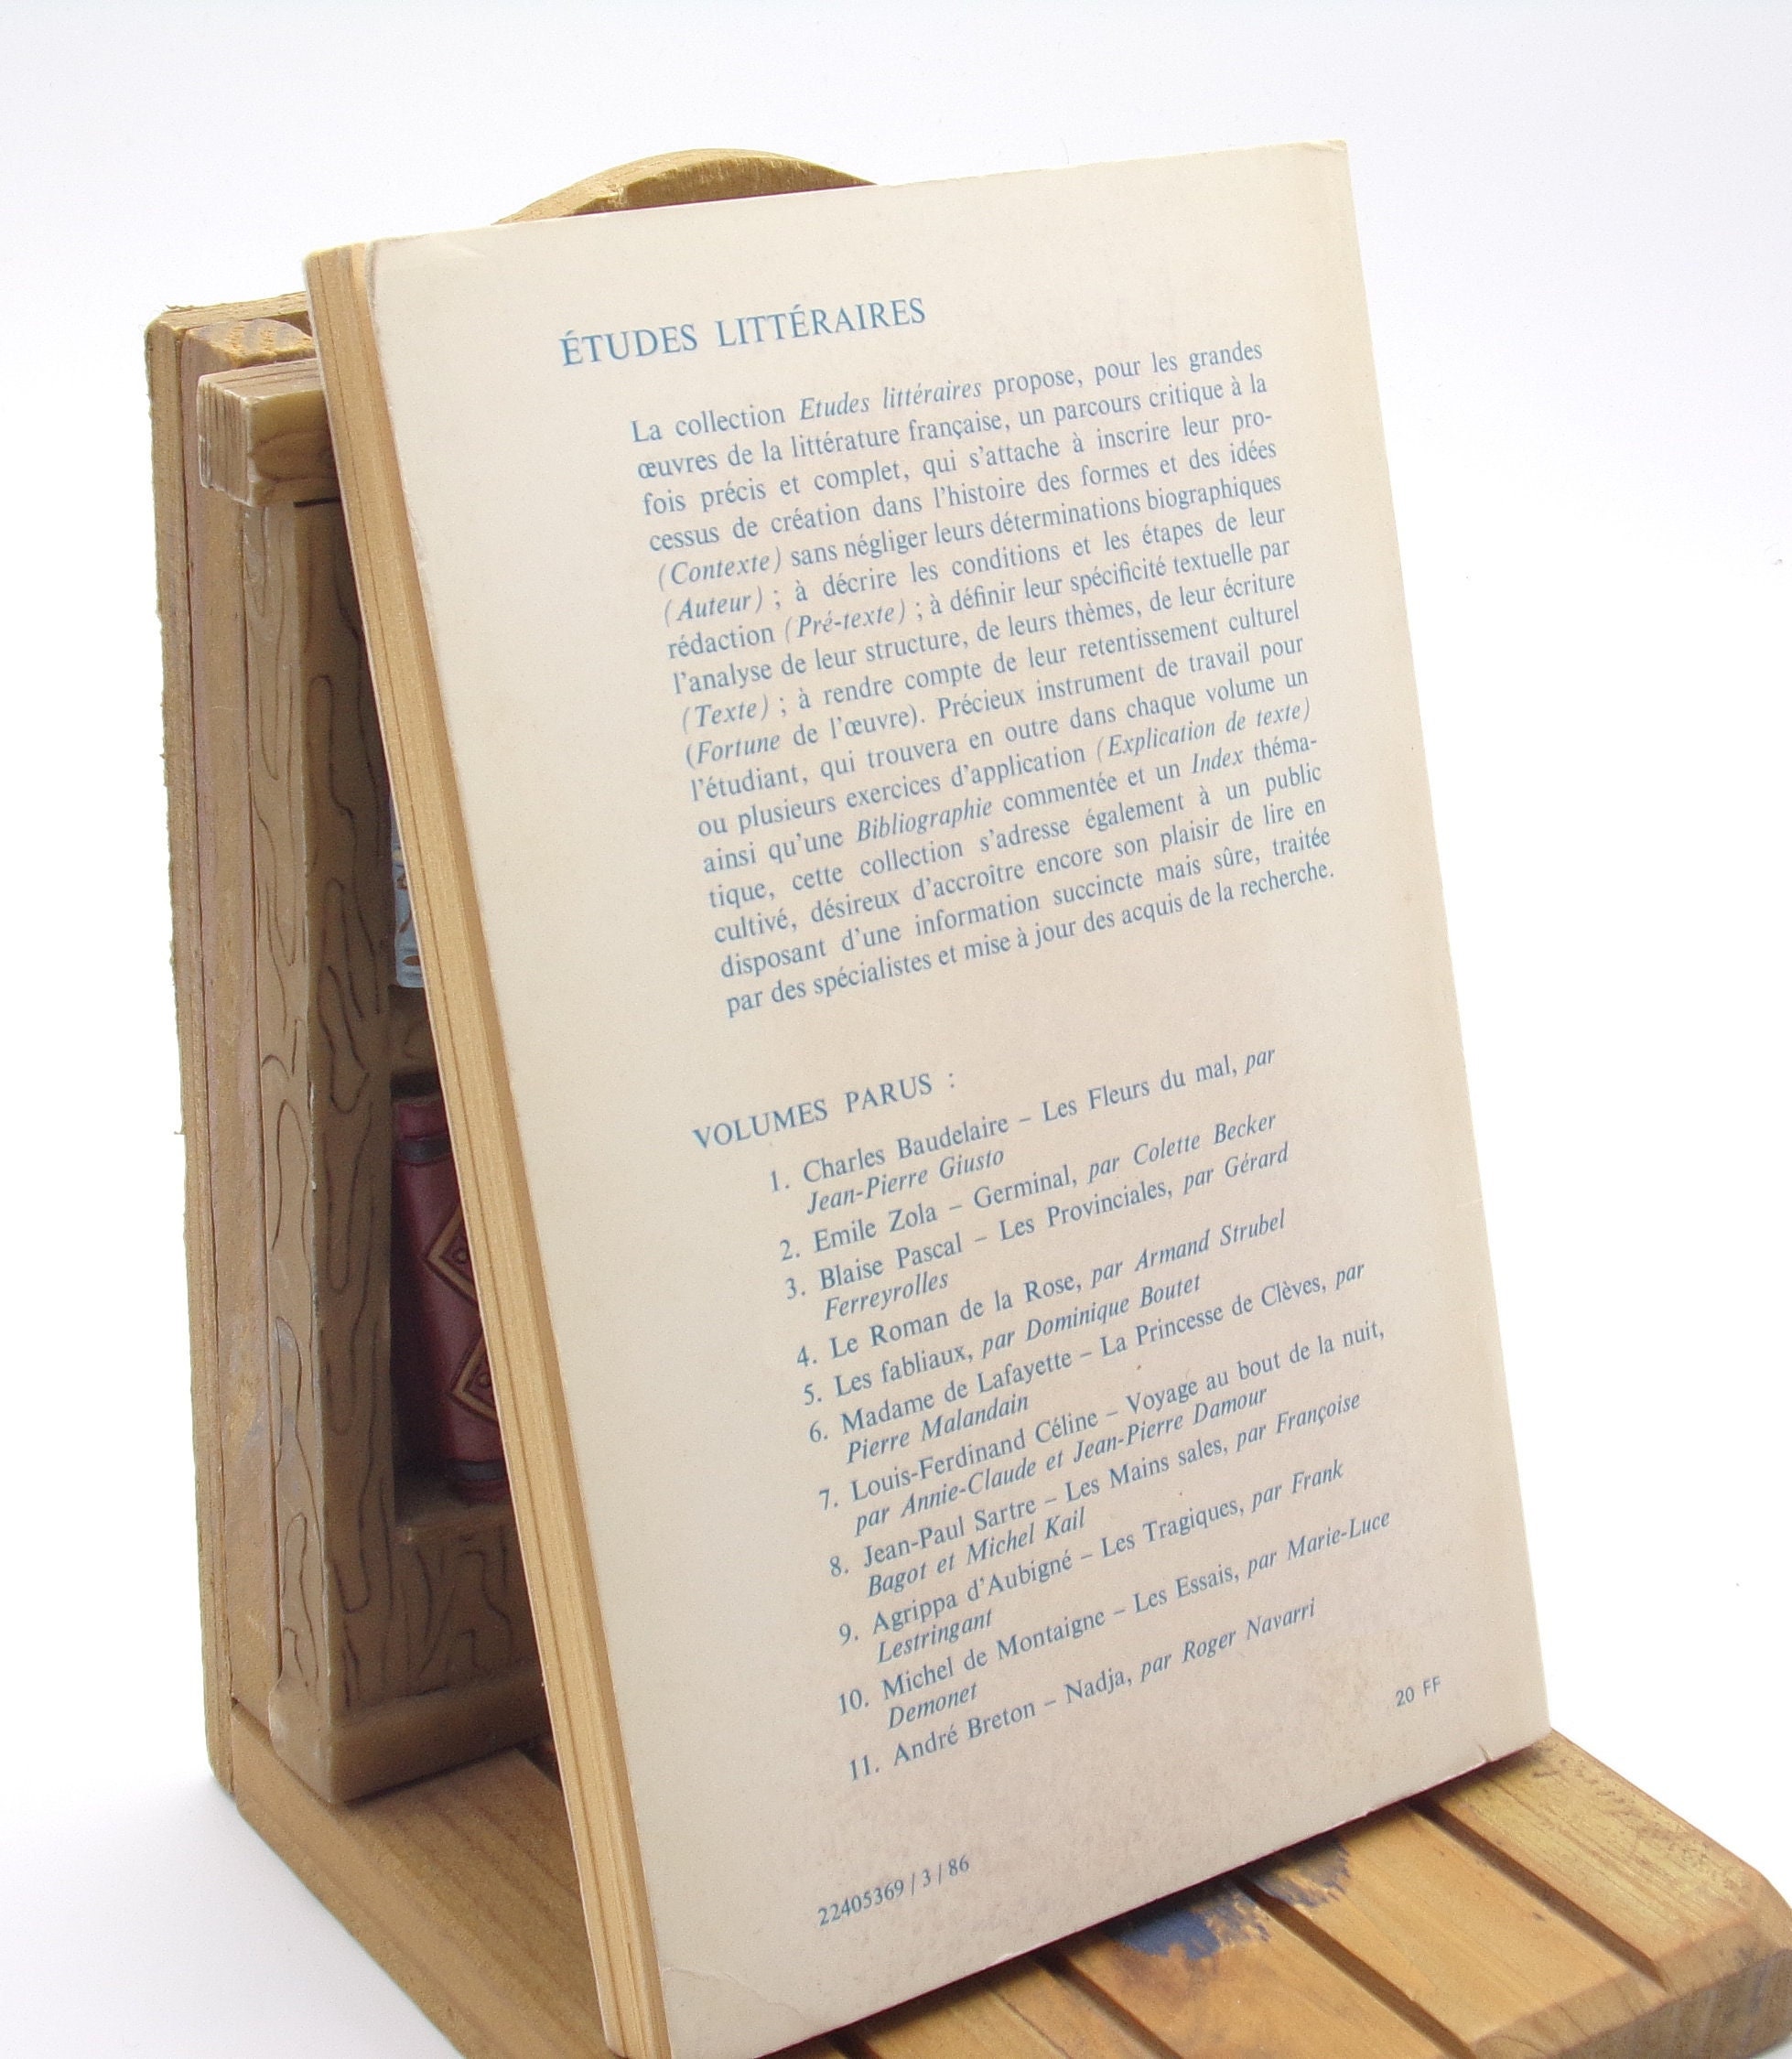 ÉTUDES LITTÉRAIRES
La collection Etudes littéraires propose, pour les grandes
œuvres de la littérature française, un parcours critique à la
fois précis et complet, qui s'attache à inscrire leur pro-
cessus de création dans l'histoire des formes et des idées
(Contexte) sans négliger leurs déterminations biographiques
(Auteur) ; à décrire les conditions et les étapes de leur
rédaction (Pré-texte) ; à définir leur spécificité textuelle par
l'analyse de leur structure, de leurs thèmes, de leur écriture
(Texte) ; à rendre compte de leur retentissement culturel
(Fortune de l'œuvre). Précieux instrument de travail pour
l'étudiant, qui trouvera en outre dans chaque volume un
ou plusieurs exercices d'application (Explication de texte)
ainsi qu'une Bibliographie commentée et un Index théma-
tique, cette collection s'adresse également à un public
cultivé, désireux d'accroître encore son plaisir de lire en
disposant d'une information succincte mais sûre, traitée
par des spécialistes et mise à jour des acquis de la recherche.
VOLUMES PARUS :
1. Charles Baudelaire – Les Fleurs du mal, par
Jean-Pierre Giusto
2. Emile Zola – Germinal, par Colette Becker
3. Blaise Pascal – Les Provinciales, par Gérard
Ferreyrolles
4. Le Roman de la Rose, par Armand Strubel
5. Les fabliaux, par Dominique Boutet
6. Madame de Lafayette – La Princesse de Clèves, par
Pierre Malandain
7. Louis-Ferdinand Céline – Voyage au bout de la nuit,
par Annie-Claude et Jean-Pierre Damour
8. Jean-Paul Sartre – Les Mains sales, par Françoise
Bagot et Michel Kail
9. Agrippa d'Aubigné – Les Tragiques, par Frank
Lestringant
10. Michel de Montaigne – Les Essais, par Marie-Luce
Demonet
11. André Breton – Nadja, par Roger Navarri
20 FF
22405369 / 3 / 86